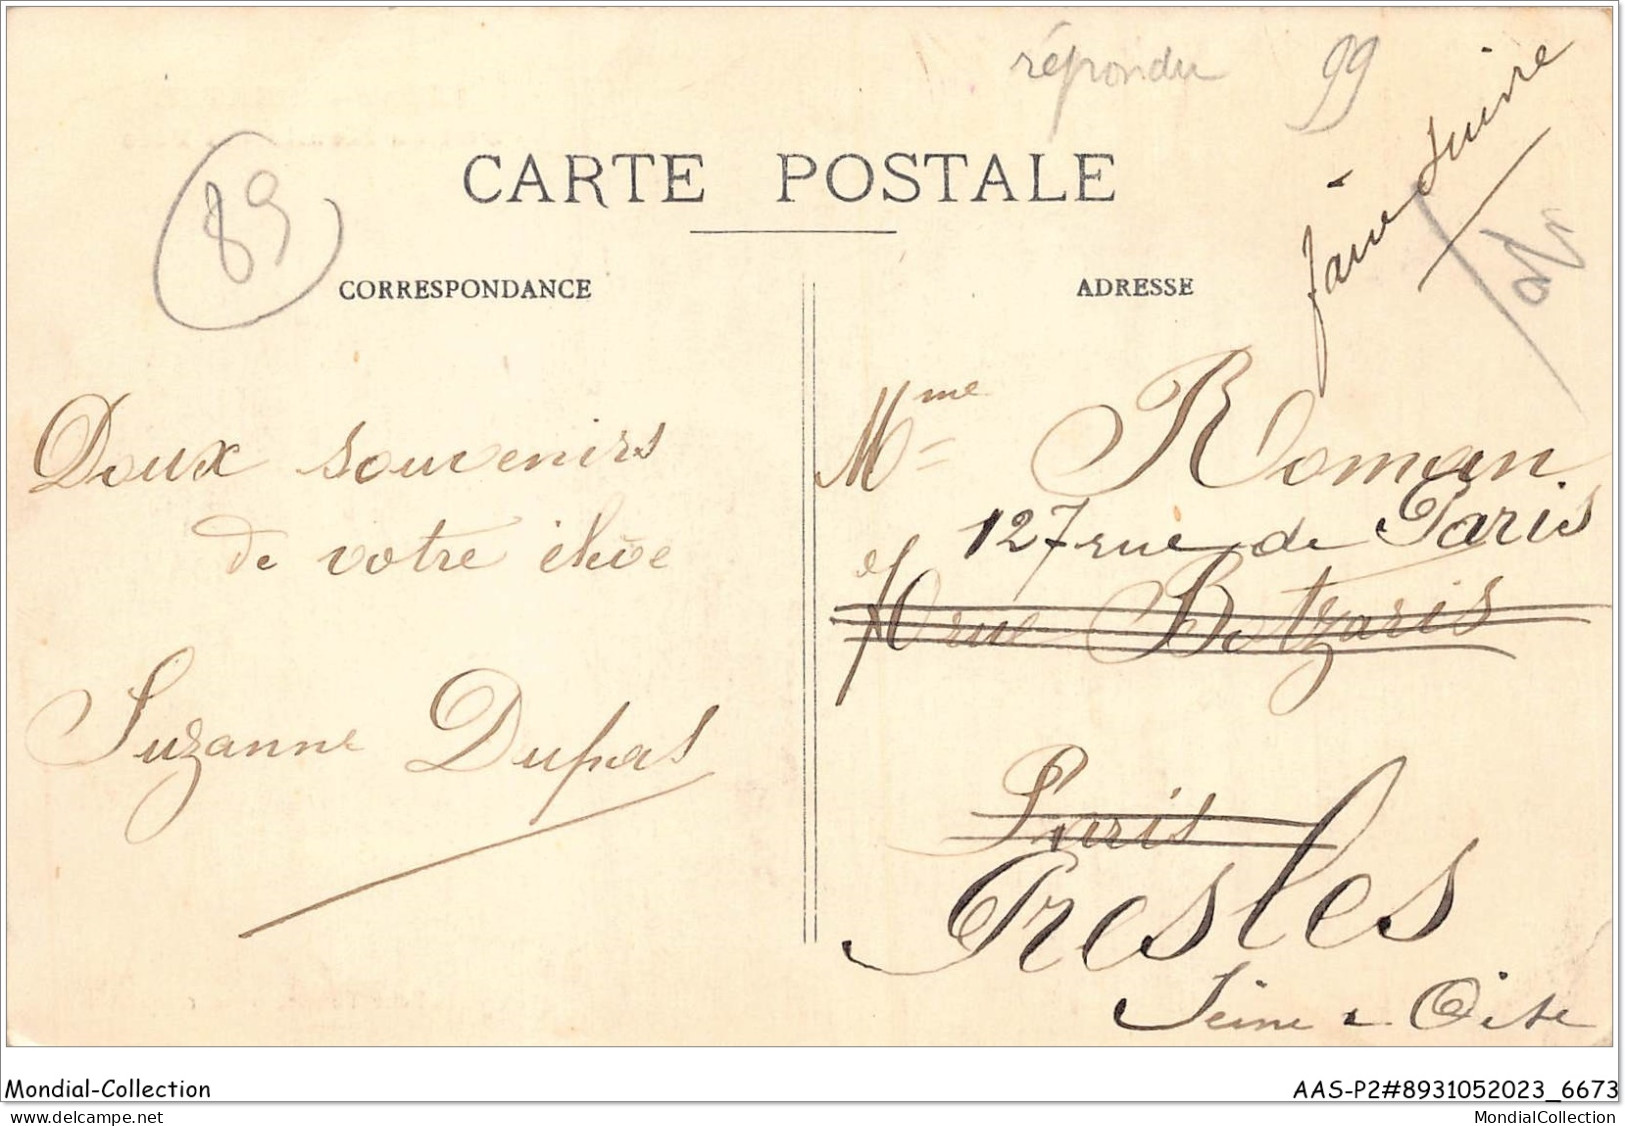 répondu 99
faire suivre
CARTE POSTALE
89
CORRESPONDANCE
ADRESSE
Doux souvenirs
de votre élève
Suzanne Dupas
Mme Roman
127 rue de Paris
70 rue Botzaris
Paris
Presles
Seine & Oise
Mondial-Collection
AAS-P2#8931052023_6673
MondialCollection